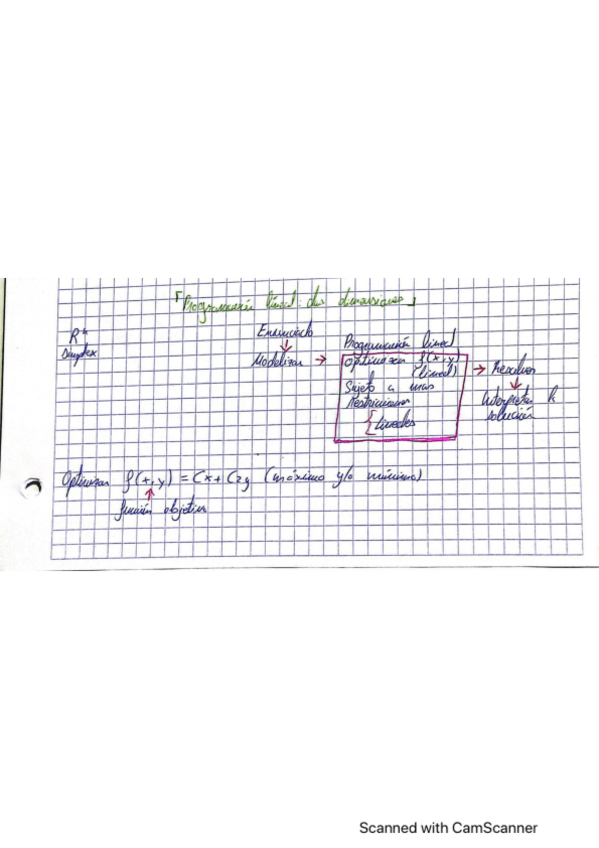 「Programación lineal: dos dimensiones」
Rⁿ
Simplex
Enunciado
↓
Modelizar →
Programación lineal
Optimizar f(x,y)
(lineal)
Sujeto a unas
Restricciones
{ lineales
→ Resolver
↓
Interpretar la
solución
Optimizar f(x,y) = Cx + C2y (máximo y/o mínimo)
↑
función objetivo
Scanned with CamScanner